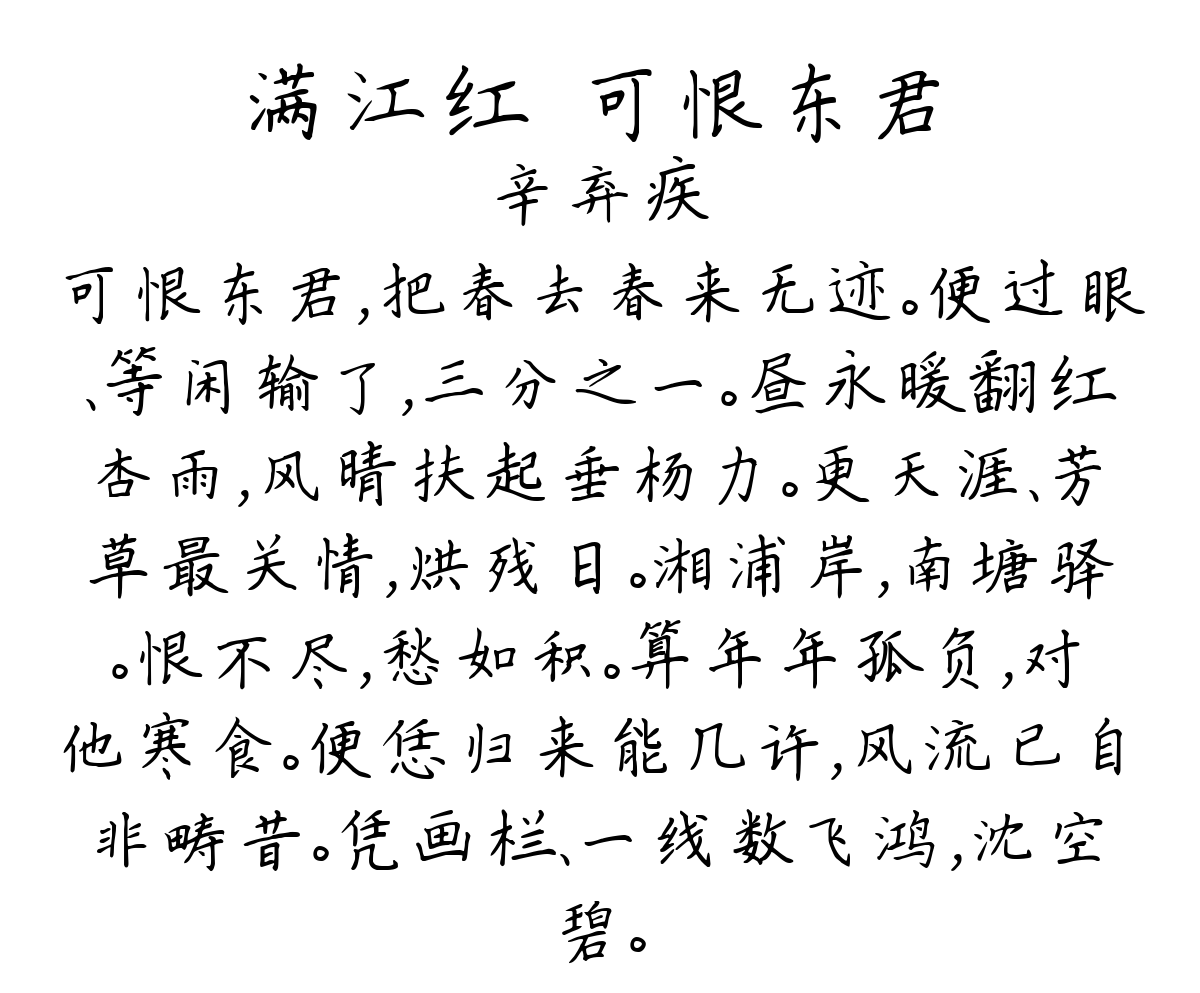 满江红 可恨东君
辛弃疾
可恨东君,把春去春来无迹。便过眼
、等闲输了,三分之一。昼永暖翻红
杏雨,风晴扶起垂杨力。更天涯、芳
草最关情,烘残日。湘浦岸,南塘驿
。恨不尽,愁如积。算年年孤负,对
他寒食。便恁归来能几许,风流已自
非畴昔。凭画栏、一线数飞鸿,沈空
碧。